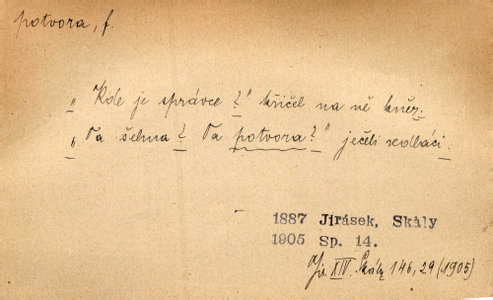 potvora, f.
„Kde je správce?" křičel na ně kněz.
„Ta šelma? Ta potvora?" ječeli sedláci.
1887 Jirásek, Skály
1905 Sp. 14.
Jir. XIV. Skály 146, 29 (1905)